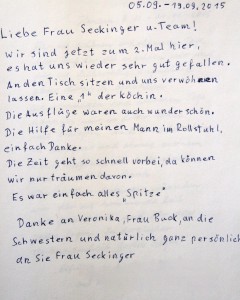 05.09. - 19.09.2015
Liebe Frau Seckinger u. Team!
Wir sind jetzt zum 2. Mal hier,
es hat uns wieder sehr gut gefallen.
An den Tisch sitzen und uns verwöhnen
lassen. Eine „1" der Köchin.
Die Ausflüge waren auch wunderschön.
Die Hilfe für meinen Mann im Rollstuhl,
einfach Danke.
Die Zeit geht so schnell vorbei, da können
wir nur träumen davon.
Es war einfach alles „Spitze"
Danke an Veronika, Frau Buck, an die
Schwestern und natürlich ganz persönlich
an Sie Frau Seckinger